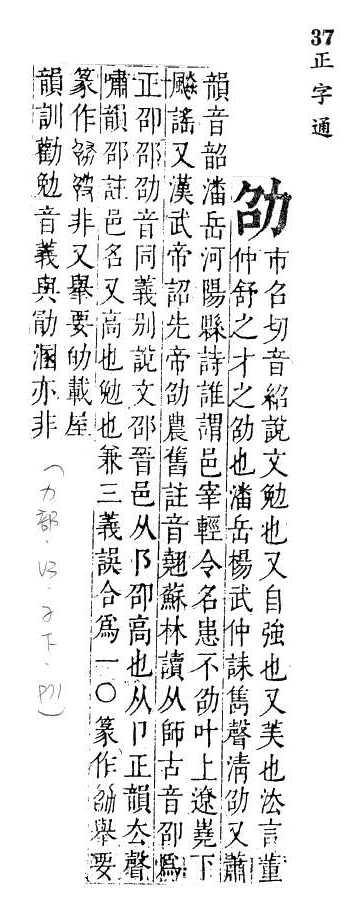 37 正字通
劭
市召切音紹說文勉也又自強也又美也法言董
仲舒之才之劭也潘岳楊武仲誄雋聲清劭又蕭
韻音韶潘岳河陽縣詩誰謂邑宰輕令名患不劭叶上遼嶤下
飈謠又漢武帝詔先帝劭農舊註音翹蘇林讀从師古音卲爲
正卲邵劭音同義別說文邵晉邑从阝卲高也从卩正韻去聲
嘯韻邵註邑名又高也勉也兼三義誤合爲一〇篆作舉要
篆作非又舉要劬載屋
韻訓勸勉音義與勖溷亦非